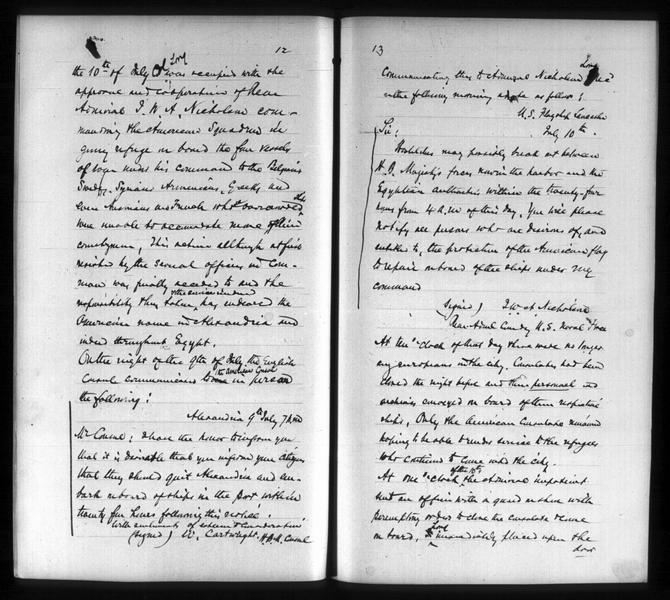 12
the 10th of July Levy was occupied with the
approve and cooperation of Rear
Admiral J. W. A. Nicholson com-
manding the American Squadron in
giving refuge on board the four vessels
of war under his command to the Belgians
Swedes, Syrians Armenians, Greeks, and
even Russians and French who
were unable to accomodate more of their
countrymen. This action although at first
resisted by the naval officers in com-
mand was finally acceded to and the
responsibility they taken, has endeared the
American name in Alexandria and
indeed throughout Egypt.
On the night of the 9th of July the English
Consul communicated to the American Consul in person
the following:
Alexandria 9th July 7 P.M
Mr Consul: I have the honor to inform you
that it is desirable that you inform your citizens
that they should quit Alexandria and em-
bark on board of ships in the port within
twenty four hours following this notice.
With sentiments of esteem & consideration
(signed) Cartwright, H.B.M. Consul
13
Communicating this to Admiral Nicholson
in the following morning a note as follows:
U.S. Flagship Lancaster
July 10th.
Sir:
Hostilities may possibly break out between
H. B. Majesty's forces now in the harbor and the
Egyptian authorities within the twenty-four
hours from 4 A.M of this day. You will please
notify all persons who are desirous of, and
entitled to, the protection of the American flag
to repair on board of the ships under my
command
(signed) J. W. A. Nicholson
Rear Adml Comdg U.S. Naval Force
At o'clock of that day there were no longer
any europeans in the city. Consulates had been
closed the night before and their personnel and
archives conveyed on board of their respective
ships, Only the American Consulate remained
hoping to be able to render service to the refugees
who continued to come into the city.
At one o'clock of the 10th the Admiral impatient
sent an officer with a guard ashore with
peremptory orders to close the consulate & come
on board. Levy immediately placed upon the
door